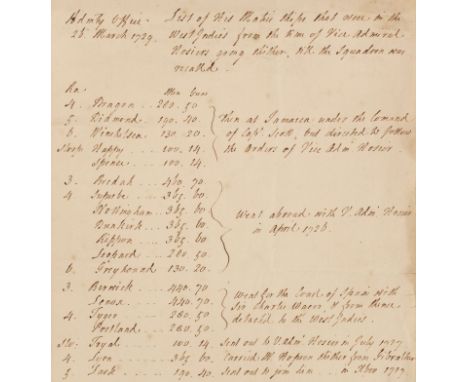 Admlty Office
26. March 1729.
List of His Maj:ts Ships that were in the
West Indies from the time of Vice Admiral
Hosiers going thither, till the Squadron was
recalled.
Ra: Men Guns
4. Dragon .. 280. 50
5. Diamond 190. 40.
6. Winchelsea 130. 20.
Sloops Happy ... 100. 14.
Spence ... 100. 14.
Then at Jamaica under the Comand
of Capt. Scott, but directed to follow
the Orders of Vice Adml Hosier.
3. Bredah .... 460. 70
4. Superbe ... 365. 60
Nottingham. 365. 60
Dunkirk .. 365. 60
Rippon .... 365. 60
Leopard .. 280. 50
6. Greyhound 130. 20.
Went abroad with V. Adml Hosier
in April 1726.
3. Berwick .... 440. 70
Lenox .... 440. 70
4. Tyger .... 280. 50
Portland ... 280. 50
Went for the Coast of Spain with
Sir Charles Wager, & from thence
detached to the West Indies.
Slo: Tryal ... 100. 14 Sent out to V. Adml Hosier in July 1727
4. Lyon .... 365. 60 Carried Mr Hopson thither from Gibralter
5. Lark .... 190. 40. Sent out to join him ... in Novr 1727